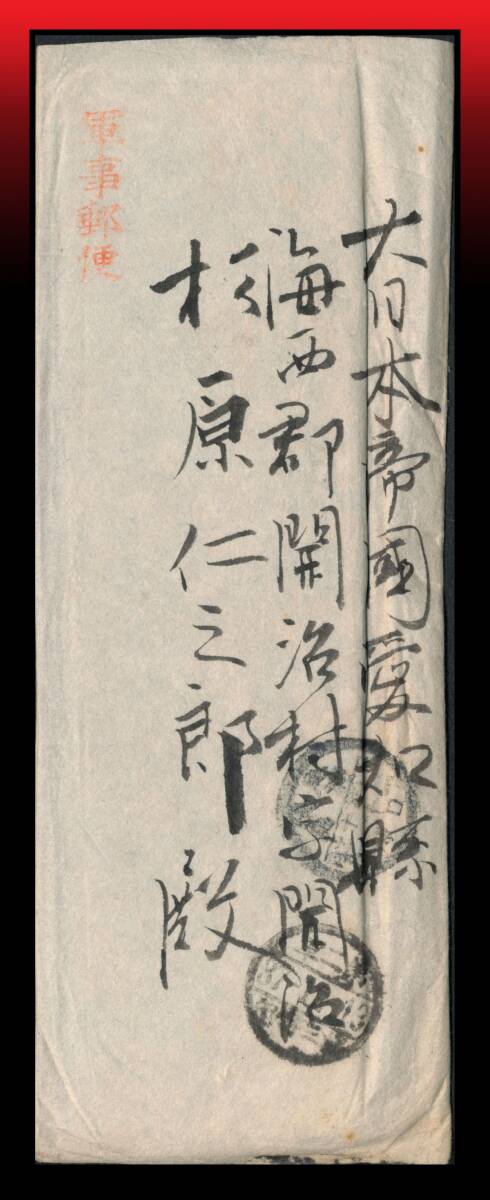 大日本帝國愛知縣
海西郡開治村字開治
杉原仁之郎殿
軍事郵便